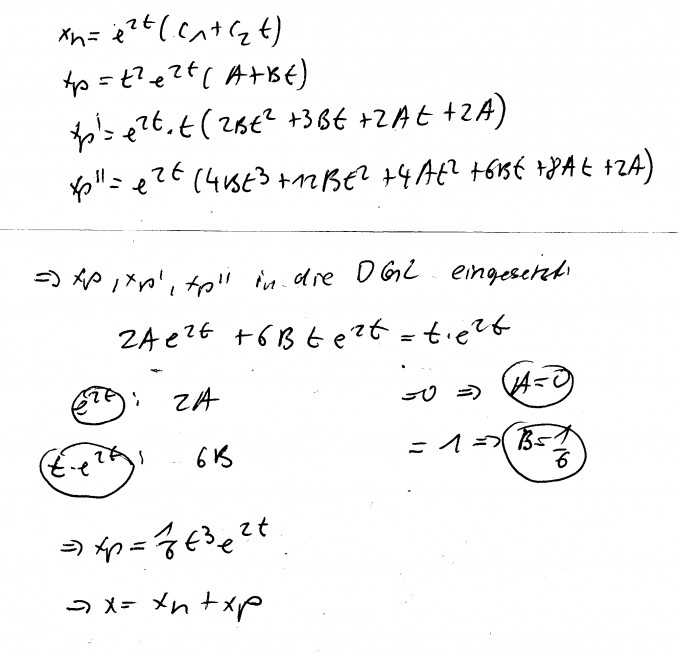 x_h = e^{2t} (C_1 + C_2 t)
x_p = t^2 e^{2t} (A + Bt)
x_p' = e^{2t} · t (2Bt^2 + 3Bt + 2At + 2A)
x_p'' = e^{2t} (4Bt^3 + 12Bt^2 + 4At^2 + 6Bt + 8At + 2A)
⇒ x_p, x_p', x_p'' in die DGL eingesetzt:
2A e^{2t} + 6B t e^{2t} = t · e^{2t}
e^{2t}: 2A = 0 ⇒ A = 0
t · e^{2t}: 6B = 1 ⇒ B = 1/6
⇒ x_p = 1/6 t^3 e^{2t}
⇒ x = x_h + x_p